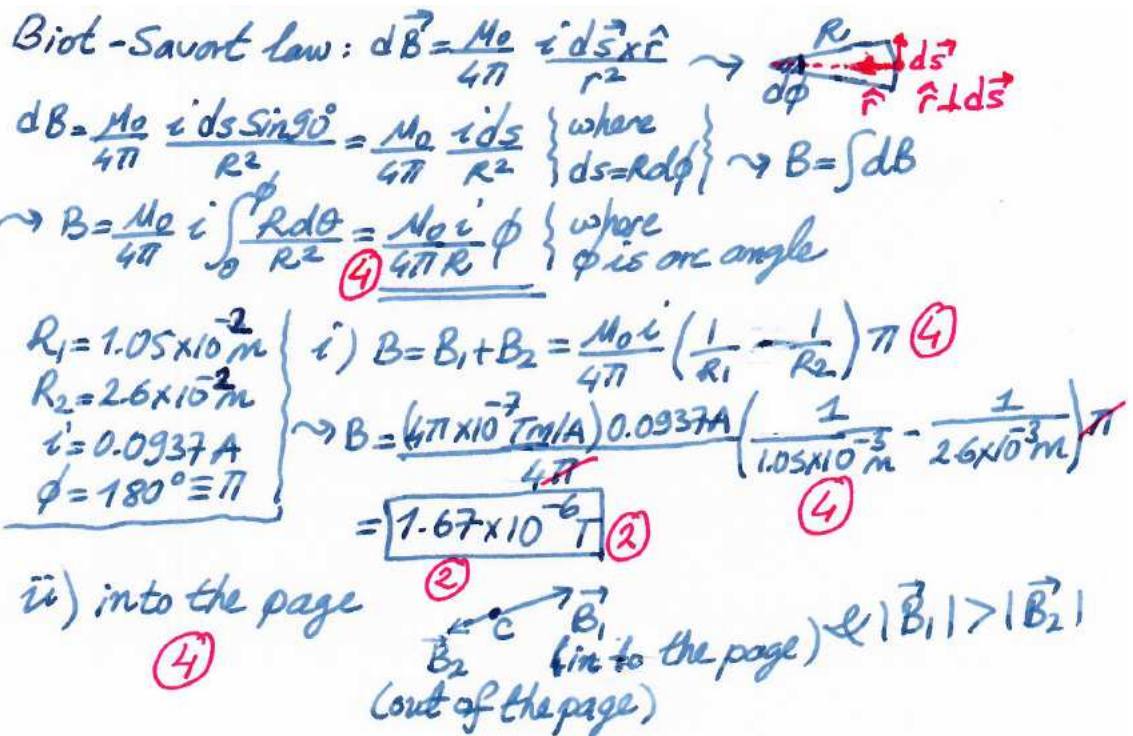 Biot-Savart law: d\vec{B} = \frac{\mu_0}{4\pi} \frac{i d\vec{s} × \hat{r}}{r^2} ⤳ R dφ \hat{r} d\vec{s} \hat{r} ⊥ d\vec{s}
dB = \frac{\mu_0}{4\pi} \frac{i ds Sin90°}{R^2} = \frac{\mu_0}{4\pi} \frac{i ds}{R^2} } where ds=Rdφ } ⤳ B = ∫dB
⤳ B = \frac{\mu_0}{4\pi} i \int_0^φ \frac{Rdθ}{R^2} = \frac{\mu_0 i}{4\pi R} φ { where φ is arc angle
④
R₁ = 1.05×10⁻² m
R₂ = 2.6×10⁻² m
i = 0.0937 A
φ = 180° ≡ π
i) B = B₁ + B₂ = \frac{\mu_0 i}{4\pi} (\frac{1}{R_1} - \frac{1}{R_2}) π ④
⤳ B = \frac{(4π×10⁻⁷ Tm/A) 0.0937A}{4π} (\frac{1}{1.05×10⁻³ m} - \frac{1}{2.6×10⁻³ m}) π
④
= 1.67×10⁻⁶ T ②
②
ii) into the page
④
C \vec{B}_1 \vec{B}_2 (in to the page) & |\vec{B}_1| > |\vec{B}_2|
(out of the page)